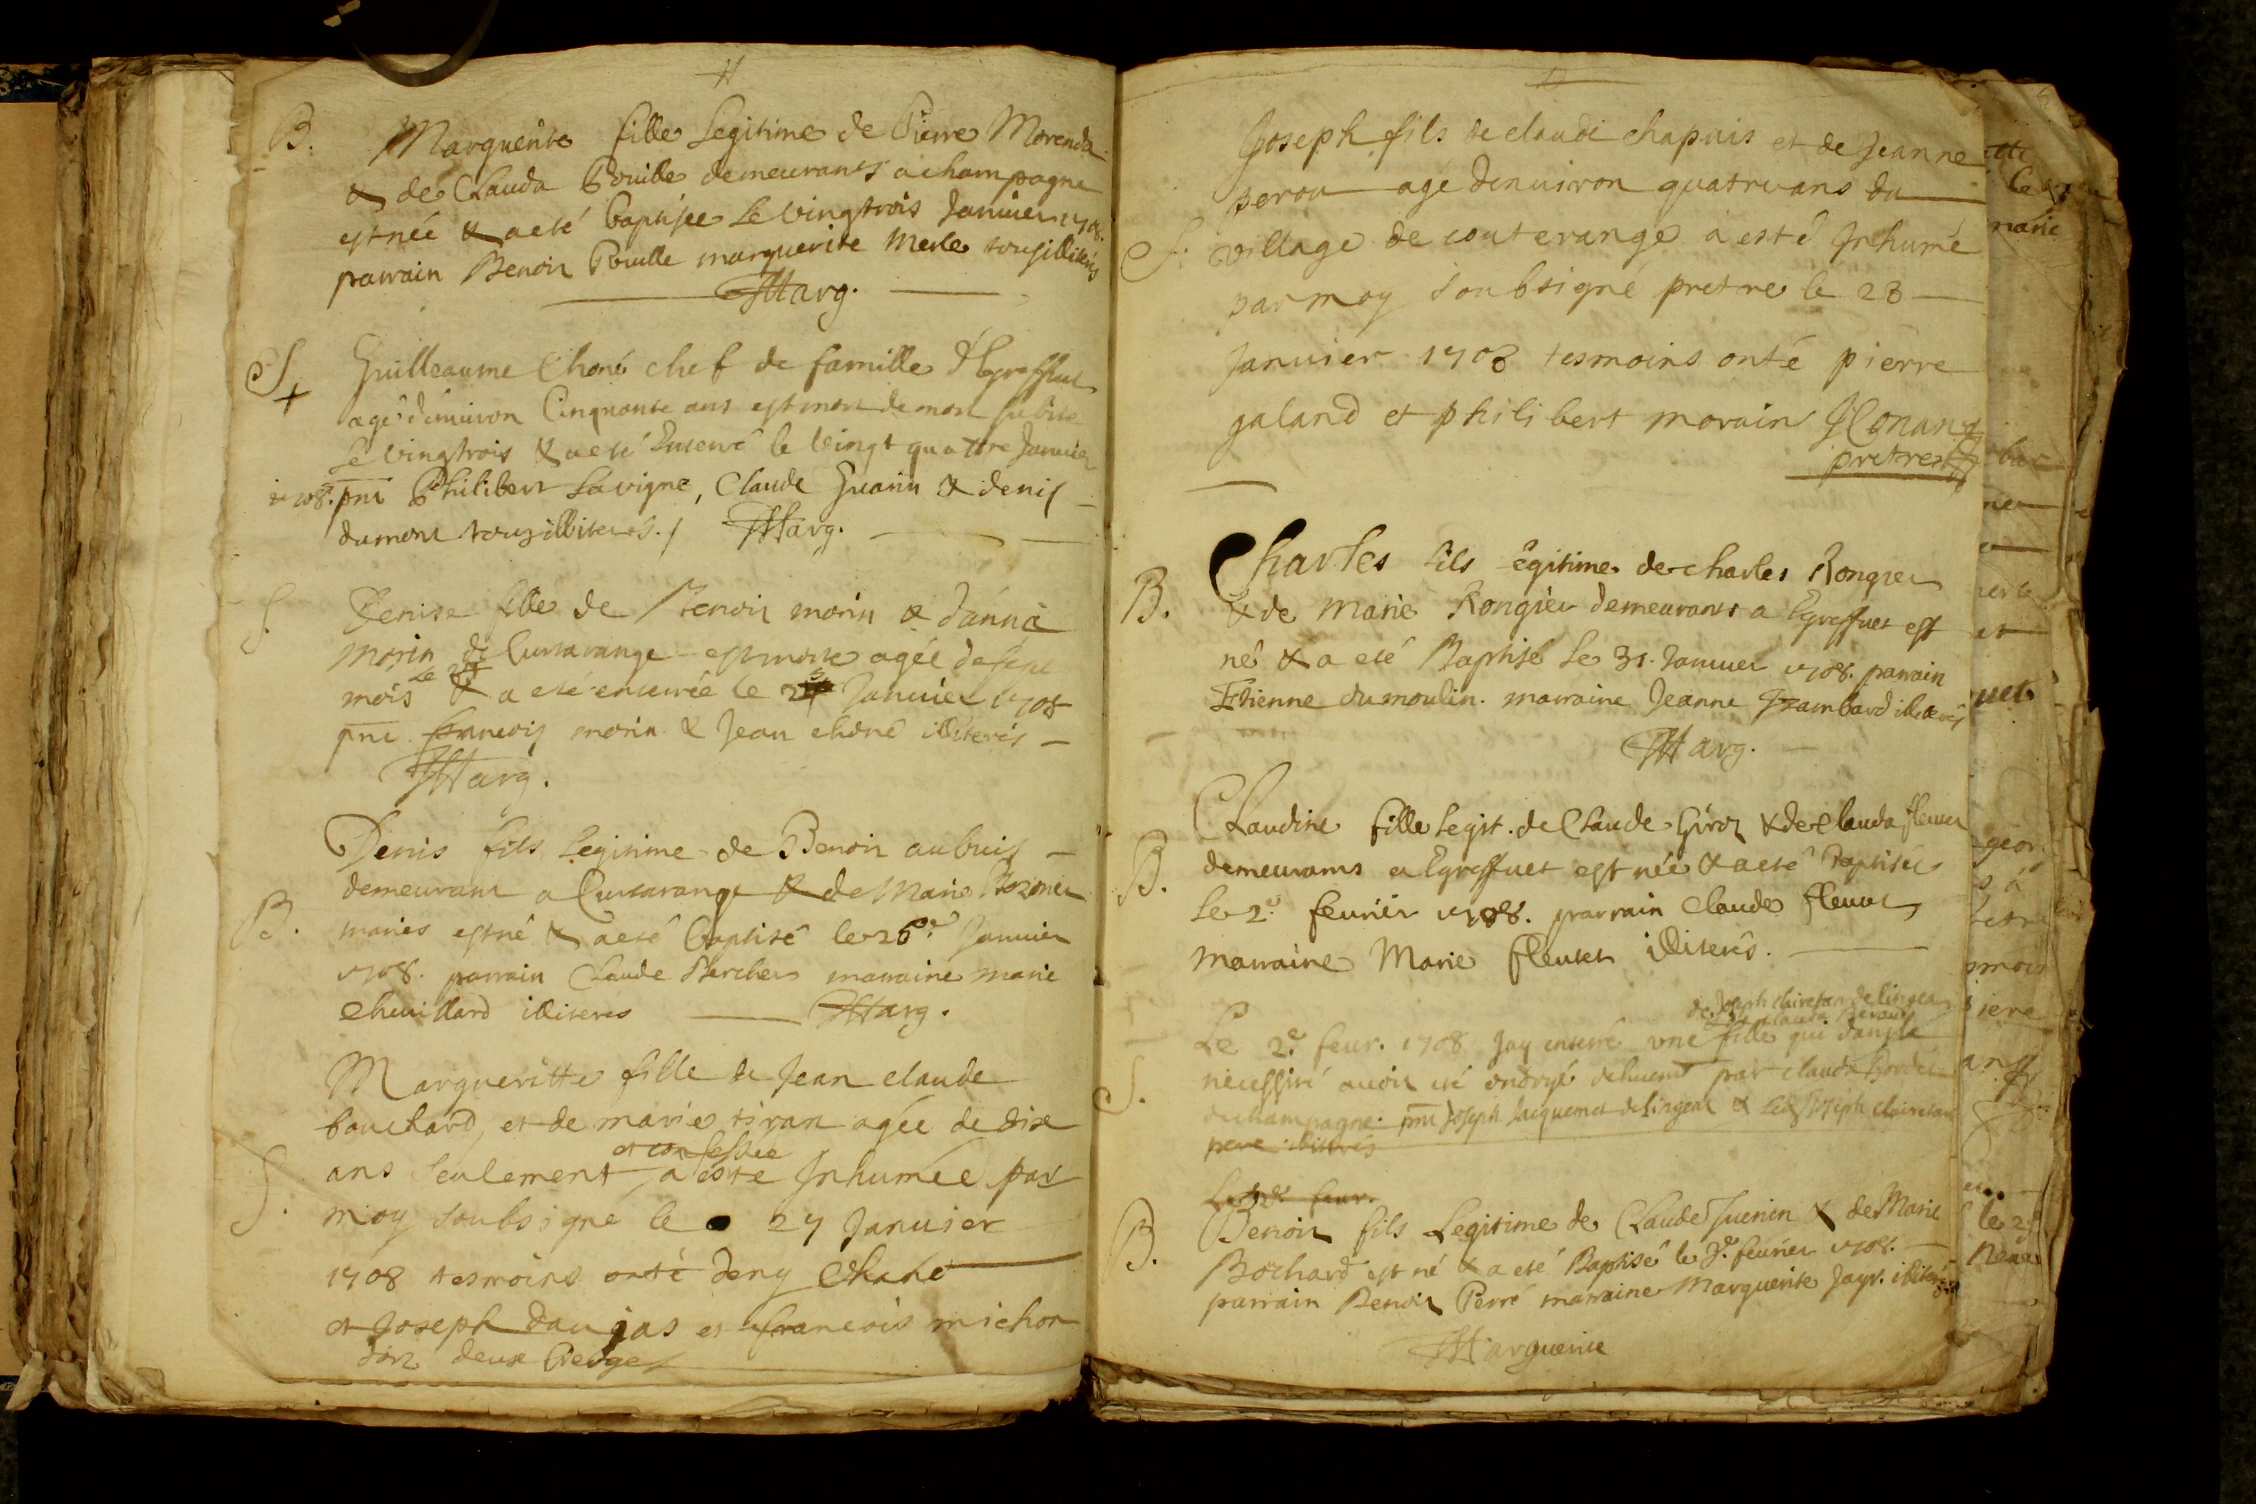 B. Marguerite fille Legitime de Pierre Morenda
& de Clauda Pouille demeurants a champagne
est née & a eté baptisee Le vingtrois Januier 1708.
parrain Benoit Pouille marguerite Merle tous illiterés
Marg.
S Guilleaume Choné chef de famille d'Egreffuet
agé d'enuiron Cinquante ans est mort de mort subite
Le vingtrois & a eté Enterré le vingt quattre Januier
1708. pnt Philibert Lavigne, Claude Guarin & denis
dumont tous illiterés. / Marg.
S. Denise fille de Benoit morin & d'anna
Morin de Curtarange est morte agée de sept
le 24
mois & a eté enterrée le 25 Januier 1708
pnt francois morin & Jean choné illiterés
Marg.
Denis fils Legitime de Benoit aubuis
demeurant a Curtarange & de Marie
B. mariés est né & a eté baptisé le 26e Januier
1708. parrain Claude Perchet marraine marie
Chevillard illiteres Marg.
Margueritte fille de Jean claude
bouchard et de marie tiran agée de dix
et confessée
ans seulement a esté Inhumée par
S. moy soubsigné le 27 Januier
1708 tesmoins onté deny Choné
et Joseph daujas et francois michon
deux
Joseph fils de claude chapuis et de Jeanne
perou agé denuiron quatre ans du
S. village de couterange a esté Inhumé
par moy soubsigné pretre le 28
Januier 1708 tesmoins onté pierre
galand et philibert morain Conand
pretre
Charles fils Legitime de charles Rongier
B. & de Marie Rongier demeurants a Egreffuet est
né & a eté Baptisé le 31. Januier 1708. parrain
Etienne dumoulin. marraine Jeanne Frambard illiterés
Marg.
Claudine fille legit. de Claude Giroz & de Clauda fleuret
B. demeurants a Egreffuet est née & a eté Baptisée
le 2e feurier 1708. parrain Claude fleuret
marraine Marie fleuret illiterés.
de Joseph clairetan de lingeat
& de clauda Beraud
Le 2e feur. 1708 Jay enterré une fille qui dans la
S. necessité auoit eté ondoyé deuement par clauda Bordet
de champagne. pnt Joseph Jacquemet de lingeat & led. Joseph clairetan
pere illiterés
Le 3e feur.
B. Benoit fils Legitime de Claude Juenin & de Marie
Bochard est né & a eté Baptisé le 3e feurier 1708.
parrain Benoit Perré marraine Marguerite Jayr. illiterés
Marguerite